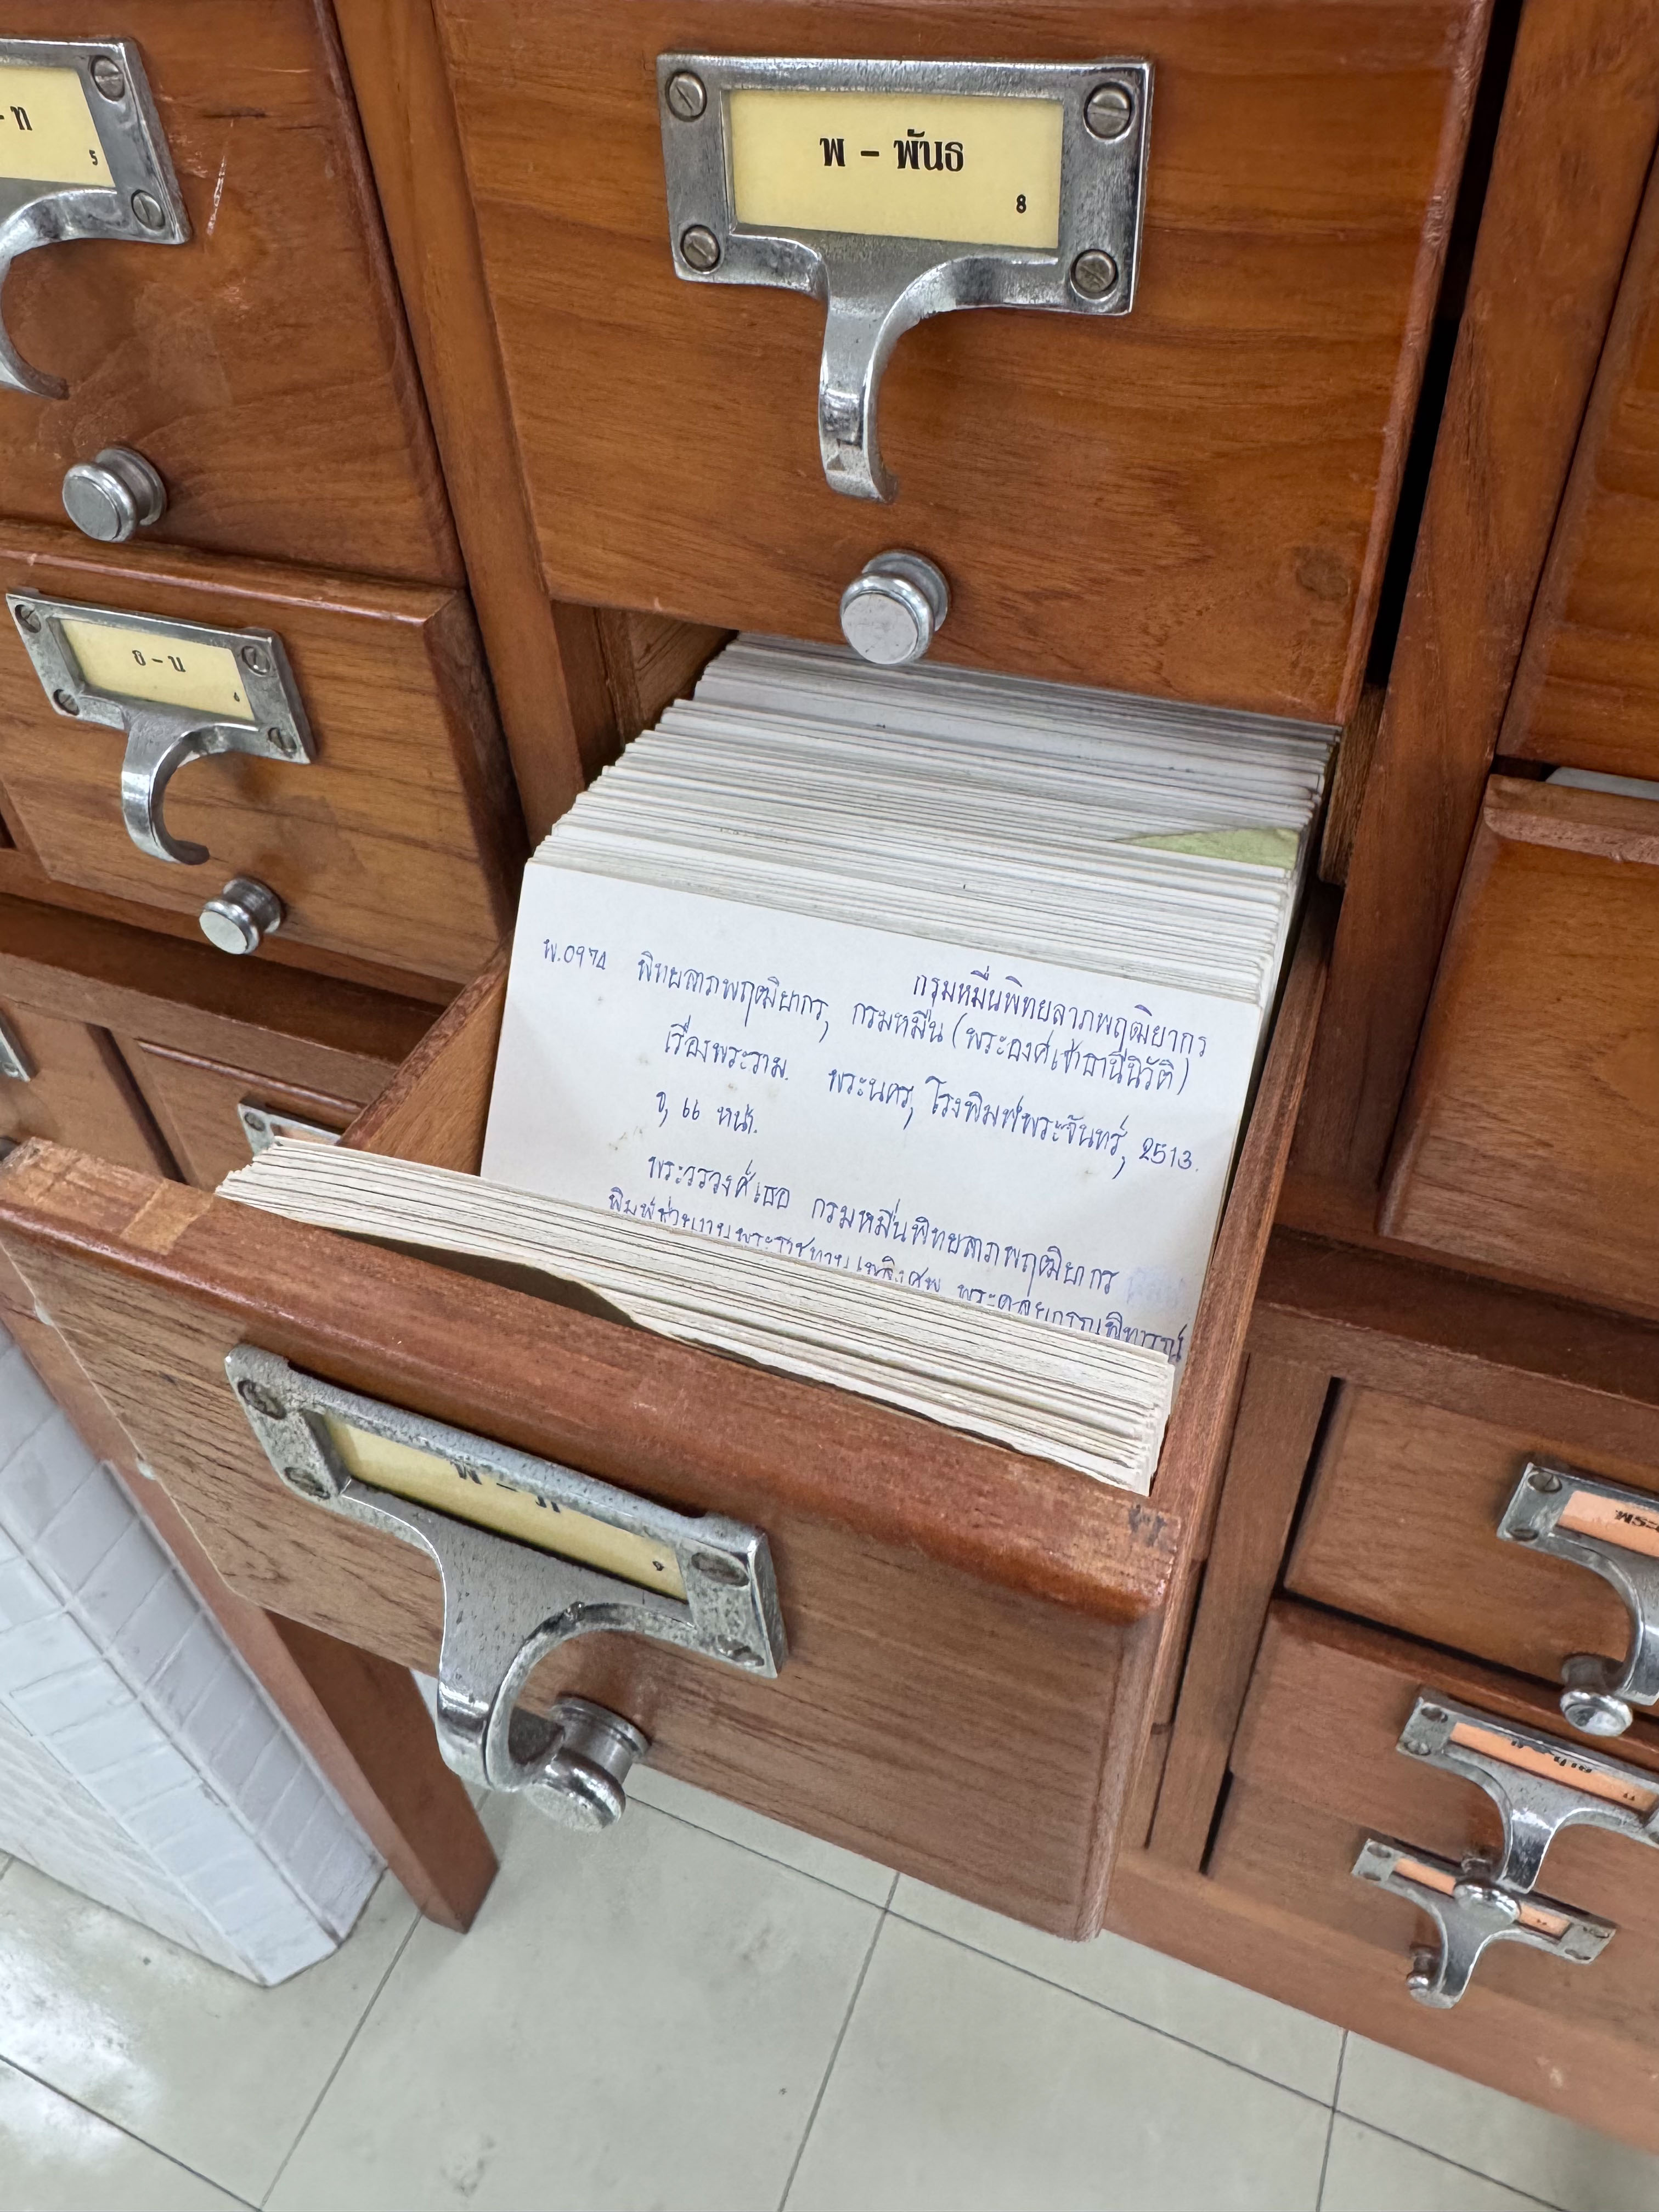 - ท
5
พ - พันธ
8
ธ - น
6
กรมหมื่นพิทยลาภพฤฒิยากร
พ.0974 พิทยลาภพฤฒิยากร, กรมหมื่น (พระองค์เจ้าธานีนิวัติ)
เรื่องพระราม. พระนคร, โรงพิมพ์พระจันทร์, 2513.
ข, 66 หน้า.
พระวรวงศ์เธอ กรมหมื่นพิทยลาภพฤฒิยากร
พิมพ์ช่วยงานพระราชทานเพลิงศพ พระดุลยกรณพิทารณ์
9